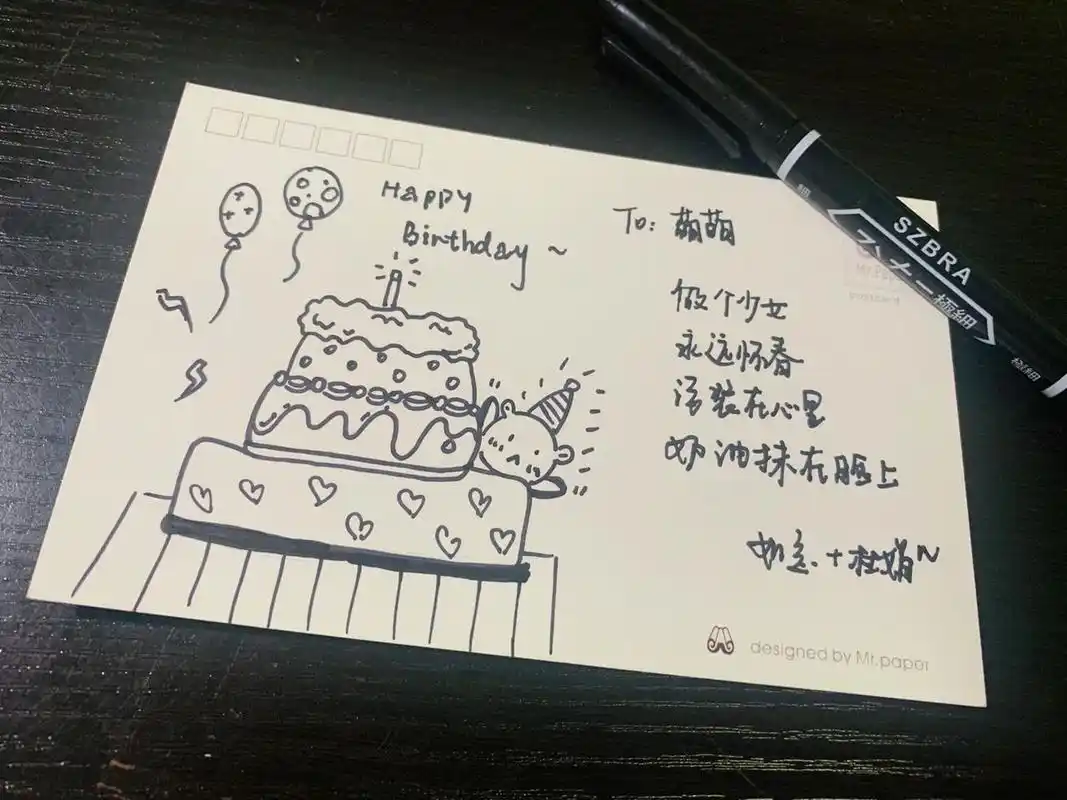 Happy
Birthday ~
To: 萌萌
做个少女
永远怀春
活装在心里
奶油抹在脸上
designed by Mr.paper
SZBRA
極細